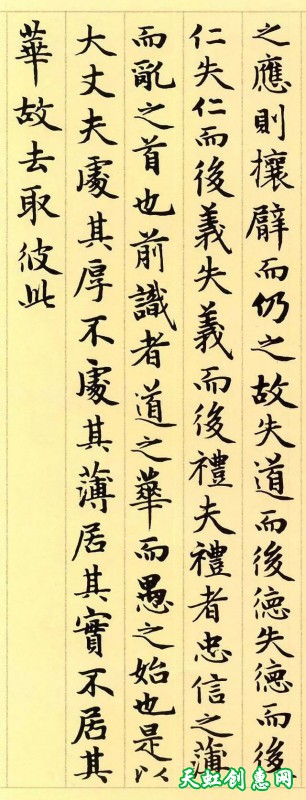 之應則攘臂而仍之故失道而後徳失徳而後
仁失仁而後義失義而後禮夫禮者忠信之薄
而亂之首也前識者道之華而愚之始也是以
大丈夫處其厚不處其薄居其實不居其
華故去取彼此
天虹创惠网